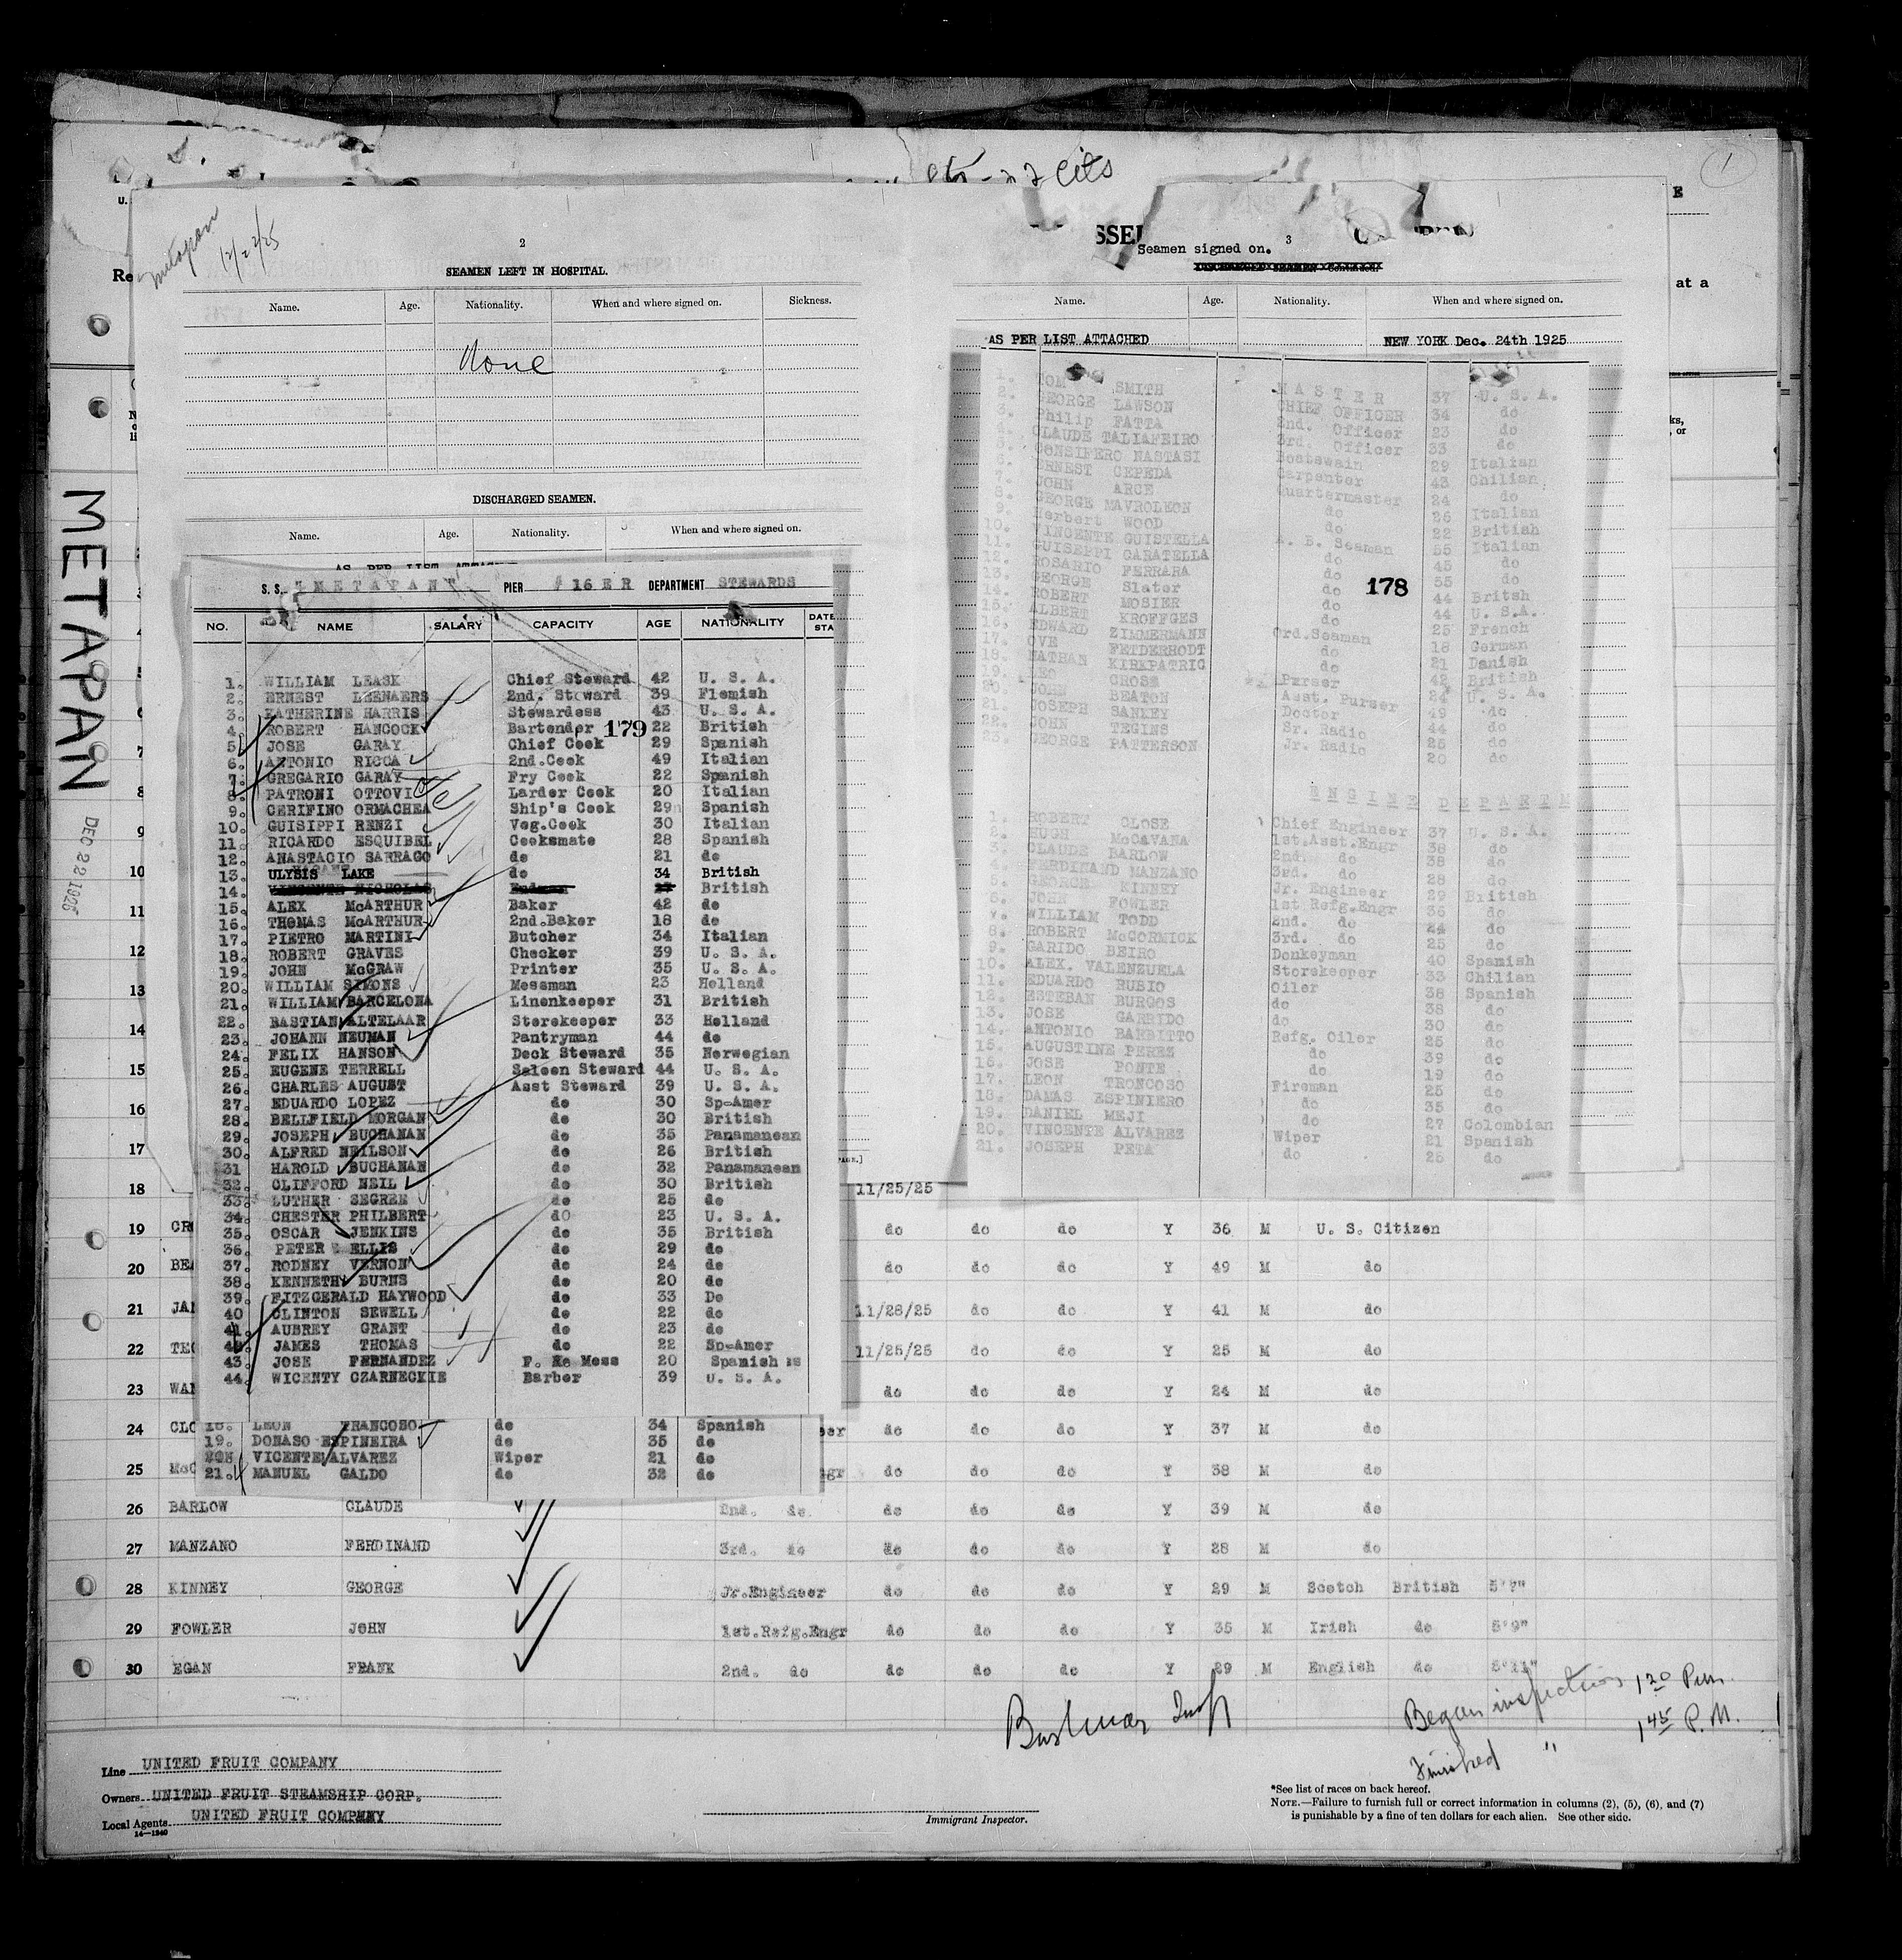 cits
1
E
U.
Re
at a
ks,
, or
Metapan
12/22/25
2
SEAMEN LEFT IN HOSPITAL.
Name. Age. Nationality. When and where signed on. Sickness.
None
DISCHARGED SEAMEN.
Name. Age. Nationality. When and where signed on.
AS PER LIST ATTAC
METAPAN
DEC 22 1925
S. S. "METAPAN" PIER # 16 E R DEPARTMENT STEWARDS
NO. NAME SALARY CAPACITY AGE NATIONALITY DATE STA
1. WILLIAM LEASK Chief Steward 42 U. S. A.
2. ERNEST LEENAERS 2nd. Steward 39 Flemish
3. KATHERINE HARRIS Stewardess 43 U. S. A.
4. ROBERT HANCOCK Bartender 179 22 British
5. JOSE GARAY Chief Cook 29 Spanish
6. ANTONIO RICCA 2nd.Cook 49 Italian
7. GREGARIO GARAY Fry Cook 22 Spanish
8. PATRONI OTTOVI Larder Cook 20 Italian
9. CERIFINO ORMACHEA Ship's Cook 29 Spanish
10. GUISIPPI RENZI Veg.Cook 30 Italian
11. RICARDO ESQUIBEL Cooksmate 28 Spanish
12. ANASTACIO SARRAGO do 21 do
13. ULYSIS LAKE do 34 British
14. VINCENTE NICHOLAS British
15. ALEX McARTHUR Baker 42 do
16. THOMAS McARTHUR 2nd.Baker 18 do
17. PIETRO MARTINI Butcher 34 Italian
18. ROBERT GRAVES Checker 39 U. S. A.
19. JOHN McGRAW Printer 35 U. S. A.
20. WILLIAM SIMONS Messman 23 Holland
21. WILLIAM BARCELONA Linenkeeper 31 British
22. BASTIAN ALTELAAR Storekeeper 33 Holland
23. JOHANN NEUMAN Pantryman 44 do
24. FELIX HANSON Deck Steward 35 Norwegian
25. EUGENE TERRELL Saloon Steward 44 U. S. A.
26. CHARLES AUGUST Asst Steward 39 U. S. A.
27. EDUARDO LOPEZ do 30 Sp-Amer
28. BELLFIELD MORGAN do 30 British
29. JOSEPH BUCHANAN do 35 Panamanean
30. ALFRED NEILSON do 26 British
31 HAROLD BUCHANAN do 32 Panamanean
32. CLIFFORD NEIL do 30 British
33. LUTHER SEGREE do 25 do
34. CHESTER PHILBERT do 23 U. S. A.
35. OSCAR JENKINS do 35 British
36. PETER ELLIS do 29 do
37. RODNEY VERNON do 24 do
38. KENNETH BURNS do 20 do
39. FITZGERALD HAYWOOD do 33 Do
40 CLINTON SEWELL do 22 do
41. AUBREY GRANT do 23 do
42. JAMES THOMAS do 22 Sp-Amer
43. JOSE FERNANDEZ Mess 20 Spanish
44. WICENTY CZARNECKIE Barber 39 U. S. A.
18. LEON FRANCOSO do 34 Spanish
19. DONASO ESPINEIRA do 35 do
20 VICENTE ALVAREZ Wiper 21 do
21. MANUEL GALDO do 32 do
3
SSEL
Seamen signed on.
DISCHARGED SEAMEN—Continued.
Name. Age. Nationality. When and where signed on.
AS PER LIST ATTACHED NEW YORK Dec. 24th 1925
1. TOM SMITH MASTER 37 U. S. A.
2. GEORGE LAWSON CHIEF OFFICER 34 do
3. Philip FATTA 2nd. Officer 23 do
4. CLAUDE TALIAFEIRO 3rd. Officer 33 do
5. CONSIFERO NASTASI Boatswain 29 Italian
6. ERNEST CEPEDA Carpenter 43 Chilian
7. JOHN ARCE Quartermaster 24 do
8. GEORGE MAVROLEON do 26 Italian
9. Herbert WOOD do 22 British
10. VINCENTE GUISTELLA A. B. Seaman 55 Italian
11. GUISEPPI CARATELLA do 45 do
12. ROSARIO FERRARA do 55 do
13. GEORGE Slater do 178 44 Britsh
14. ROBERT MOSIER do 44 U. S.A.
15. ALBERT KROFFGES do 25 French
16. EDWARD ZIMMERMANN Ord.Seaman 18 German
17. OVE FEIDERHODT do 21 Danish
18. NATHAN KIRKPATRIC do 42 British
19. CROSS Purser 24 U. S. A.
20. JOHN BEATON Asst. Purser 49 do
21. JOSEPH SANLEY Doctor 44 do
22. JOHN TEGINS Sr. Radio 25 do
23. GEORGE PATTERSON Jr. Radio 20 do
ENGINE DEPARTM
1. ROBERT CLOSE Chief Engineer 37 U. S. A.
2. HUGH McCAVANA 1st.Asst.Engr 38 do
3. CLAUDE BARLOW 2nd. do 38 do
FERDINAND MANZANO 3rd. do 28 do
5. GEORGE KINNEY Jr. Engineer 29 British
6. JOHN FOWLER 1st Refg.Engr 36 do
WILLIAM TODD 2nd. do 24 do
8. ROBERT McCORMICK 3rd. do 25 do
9. GARIDO BEIRO Donkeyman 40 Spanish
10. ALEX. VALENZUELA Storekeeper 33 Chilian
11. EDUARDO RUBIO Oiler 38 Spanish
12. ESTEBAN BURGOS do 38 do
13. JOSE GARRIDO do 30 do
14. ANTONIO BARBITTO Refg. Oiler 25 do
15. AUGUSTINE PEREZ do 39 do
16. JOSE PONTE do 19 do
17. LEON TRONCOSO Fireman 25 do
18. DAMAS ESPINIERO do 35 do
19. DANIEL MEJI do 27 Colombian
20. VINCENTE ALVAREZ Wiper 21 Spanish
21. JOSEPH PETA do 25 do
7
8
9
10
11
12
13
14
15
16
17
18 11/25/25
19 CR do do do Y 36 M U. S. Citizen
20 BEA do do do Y 49 M do
21 JAN 11/28/25 do do Y 41 M do
22 TEG 11/25/25 do do Y 25 M do
23 WAL do do do Y 24 M do
24 CLO eer do do do Y 37 M do
25 McC ngr do do do Y 38 M do
26 BARLOW CLAUDE 2nd. do do do do Y 39 M do
27 MANZANO FERDINAND 3rd. do do do do Y 28 M do
28 KINNEY GEORGE Jr.Engineer do do do Y 29 M Scotch British 5'7"
29 FOWLER JOHN 1st.Refg.Engr do do do Y 35 M Irish do 5'9"
30 EGAN FRANK 2nd. do do do do Y 29 M English do 5'11"
Began inspection 1 20 P.M.
Finished " 1 45 P. M.
Line UNITED FRUIT COMPANY
Owners UNITED FRUIT STEAMSHIP CORP.
Local Agents UNITED FRUIT COMPANY
14—1240
Immigrant Inspector.
*See list of races on back hereof.
NOTE.—Failure to furnish full or correct information in columns (2), (5), (6), and (7)
is punishable by a fine of ten dollars for each alien. See other side.